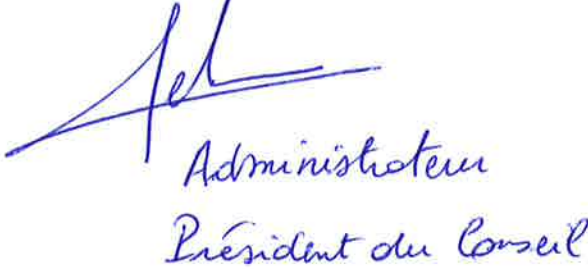 Administrateur
Président du Conseil